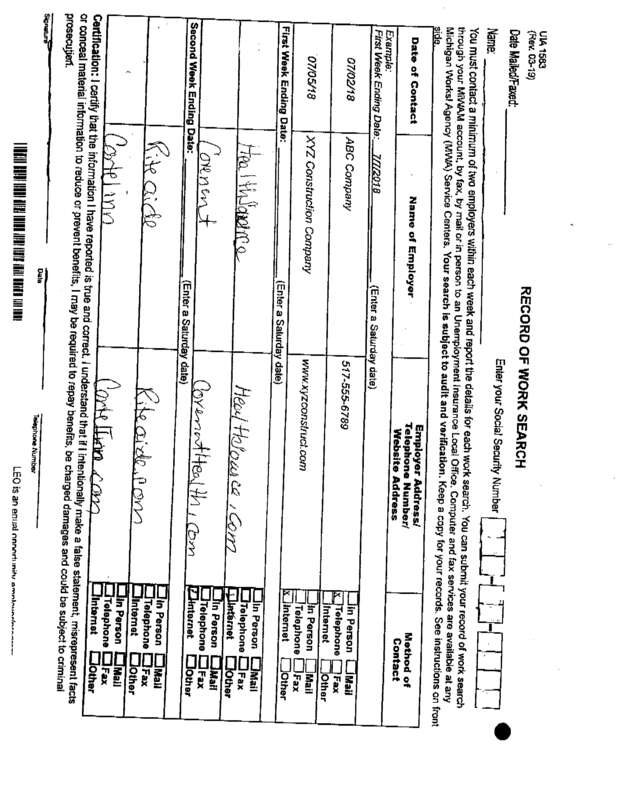 UIA 1583
(Rev. 03-19)
RECORD OF WORK SEARCH
Date Mailed/Faxed:
Name:
Enter your Social Security Number
You must contact a minimum of two employers within each week and report the details for each work search. You can submit your record of work search
through your MiWAM account, by fax, by mail or in person to an Unemployment Insurance Local Office. Computer and fax services are available at any
Michigan Works! Agency (MWA) Service Centers. Your search is subject to audit and verification. Keep a copy for your records. See instructions on front
side.
Date of Contact
Name of Employer
Employer Address/
Telephone Number/
Website Address
Method of
Contact
Example:
First Week Ending Date: 7/7/2018 (Enter a Saturday date)
07/02/18 ABC Company 517-555-6789
In Person Mail
X Telephone Fax
Internet Other
07/05/18 XYZ Construction Company www.xyzconstruct.com
In Person Mail
Telephone Fax
X Internet Other
First Week Ending Date: (Enter a Saturday date)
In Person Mail
Telephone Fax
Internet Other
Covenent
In Person Mail
Telephone Fax
Internet Other
Second Week Ending Date: (Enter a Saturday date)
Rite aide Rite aide.com
In Person Mail
Telephone Fax
Internet Other
In Person Mail
Telephone Fax
Internet Other
Certification: I certify that the information I have reported is true and correct. I understand that if I intentionally make a false statement, misrepresent facts
or conceal material information to reduce or prevent benefits, I may be required to repay benefits, be charged damages and could be subject to criminal
prosecution.
Signature Date Telephone Number
LEO is an equal opportunity